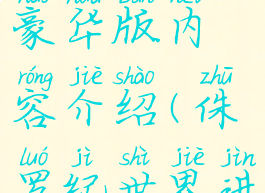 豪华版内
róng jiè shào zhū
容介绍(侏
luó jì shì jiè jìn
罗纪世界进